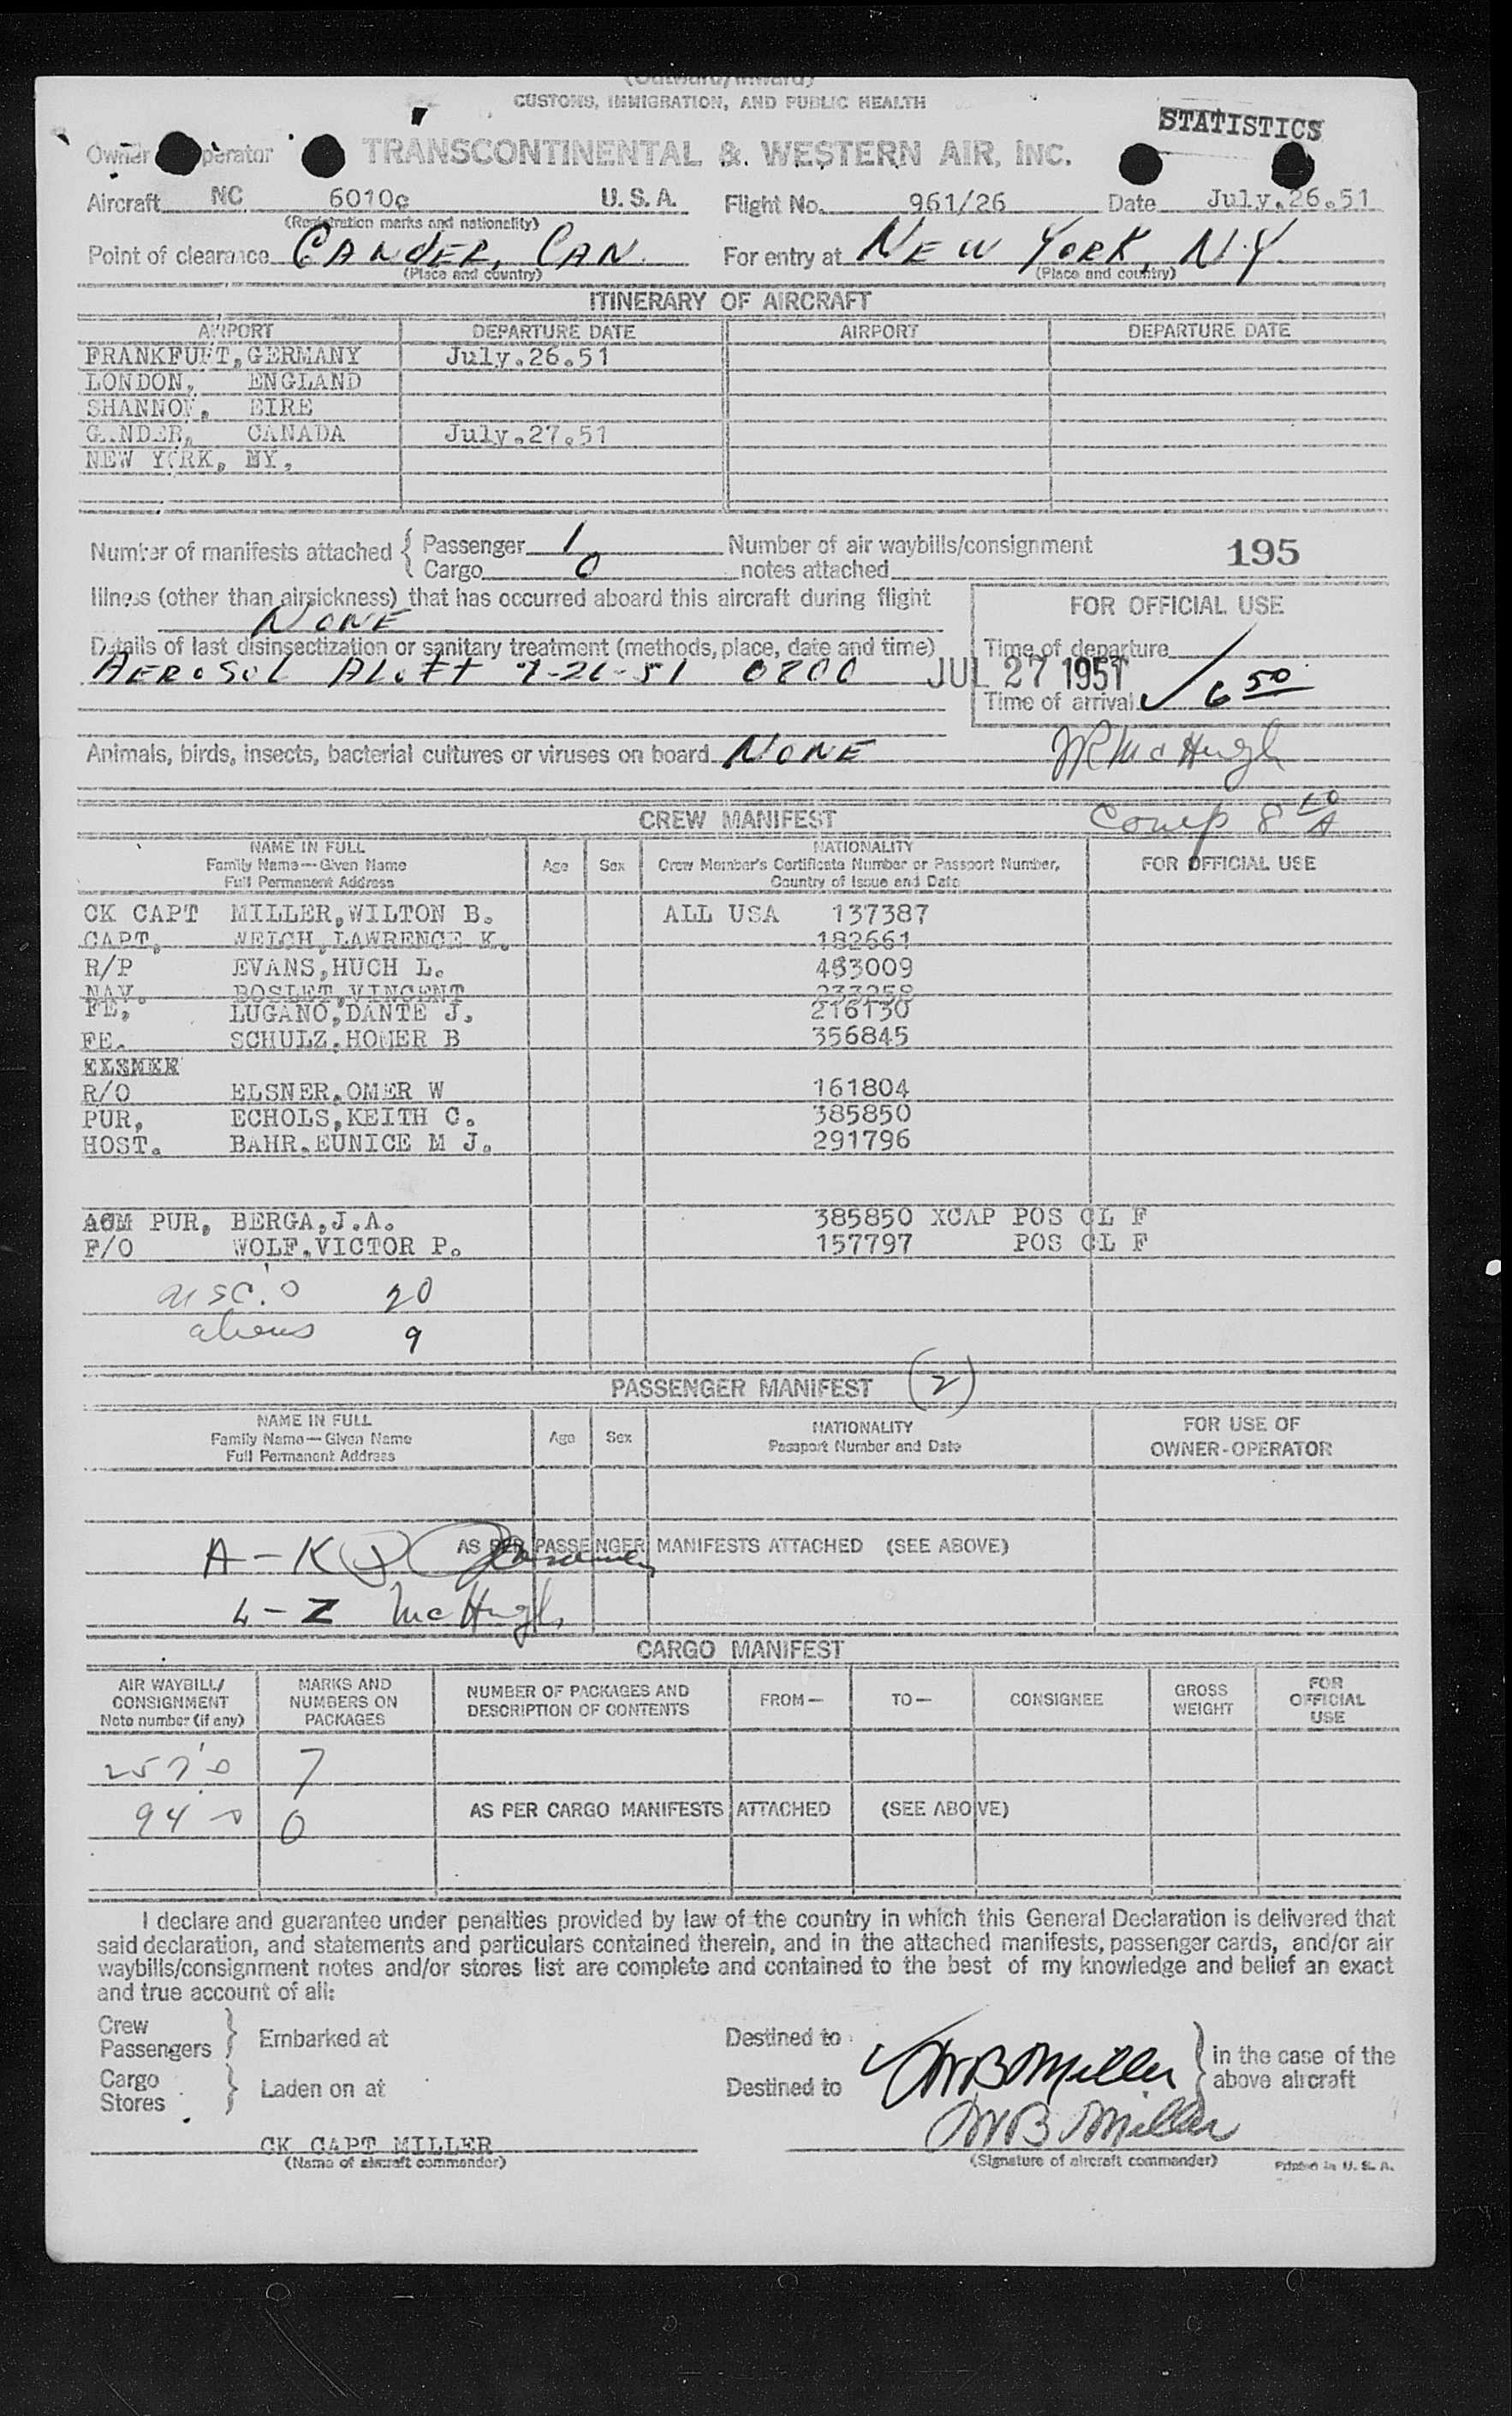 (Outward/Inward)
CUSTOMS, IMMIGRATION, AND PUBLIC HEALTH
STATISTICS
Owner perator TRANSCONTINENTAL & WESTERN AIR, INC.
Aircraft NC 6010c U.S.A. Flight No. 961/26 Date July.26.51
(Registration marks and nationality)
Point of clearance GANDER, CAN. For entry at NEW YORK, N.Y.
(Place and country) (Place and country)
ITINERARY OF AIRCRAFT
AIRPORT DEPARTURE DATE AIRPORT DEPARTURE DATE
FRANKFURT, GERMANY July.26.51
LONDON, ENGLAND
SHANNON, EIRE
GANDER, CANADA July.27.51
NEW YORK, NY,
Number of manifests attached { Passenger 1 Number of air waybills/consignment 195
Cargo 0 notes attached
Illness (other than airsickness) that has occurred aboard this aircraft during flight
NONE
FOR OFFICIAL USE
Details of last disinsectization or sanitary treatment (methods, place, date and time)
Time of departure
AEROSOL ALOFT 7-26-51 0200 JUL 27 1951
Time of arrival 6 50
Animals, birds, insects, bacterial cultures or viruses on board NONE
JR McHugh
CREW MANIFEST Comp 8 50 A
NAME IN FULL
Family Name—Given Name
Full Permanent Address
Age Sex
NATIONALITY
Crew Member's Certificate Number or Passport Number,
Country of Issue and Date
FOR OFFICIAL USE
CK CAPT MILLER,WILTON B. ALL USA 137387
CAPT, WELCH,LAWRENCE K. 182661
R/P EVANS,HUCH L. 483009
NAV. BOSLET,VINCENT 233258
FE, LUGANO,DANTE J. 216130
FE. SCHULZ,HOMER B 356845
R/O ELSNER,OMER W 161804
PUR, ECHOLS,KEITH C. 385850
HOST. BAHR,EUNICE M J. 291796
ACM PUR, BERGA,J.A. 385850 XCAP POS CL F
F/O WOLF,VICTOR P. 157797 POS CL F
usc's 20
aliens 9
PASSENGER MANIFEST (2)
NAME IN FULL
Family Name—Given Name
Full Permanent Address
Age Sex
NATIONALITY
Passport Number and Date
FOR USE OF
OWNER-OPERATOR
A-K
AS PER PASSENGER MANIFESTS ATTACHED (SEE ABOVE)
L-Z McHugh
CARGO MANIFEST
AIR WAYBILL/
CONSIGNMENT
Note number (if any)
MARKS AND
NUMBERS ON
PACKAGES
NUMBER OF PACKAGES AND
DESCRIPTION OF CONTENTS
FROM— TO— CONSIGNEE
GROSS
WEIGHT
FOR
OFFICIAL
USE
257's 7
94 s 0
AS PER CARGO MANIFESTS ATTACHED (SEE ABOVE)
I declare and guarantee under penalties provided by law of the country in which this General Declaration is delivered that
said declaration, and statements and particulars contained therein, and in the attached manifests, passenger cards, and/or air
waybills/consignment notes and/or stores list are complete and contained to the best of my knowledge and belief an exact
and true account of all:
Crew
Passengers } Embarked at Destined to
WB Miller } in the case of the
above aircraft
Cargo
Stores } Laden on at Destined to
WB Miller
CK CAPT MILLER
(Name of aircraft commander) (Signature of aircraft commander) Printed in U. S. A.